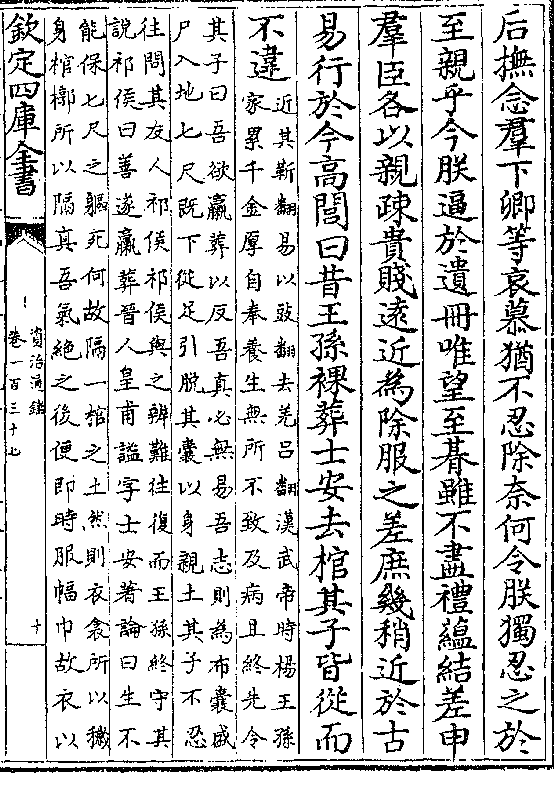 后撫念羣下卿等哀慕猶不忍除奈何令朕獨忍之於
至親乎今朕逼於遺冊唯望至朞雖不盡禮蘊結差申
羣臣各以親疎貴賤遠近為除服之差庶幾稍近於古
易行於今高閭曰昔王孫祼葬士安去棺其子皆從而
不違
近其靳翻易以豉翻去羌呂翻漢武帝時楊王孫
家累千金厚自奉養生無所不致及病且終先令
其子曰吾欲臝葬以反吾真必無易吾志則為布囊盛
尸入地七尺既下從足引脫其囊以身親土其子不忍
往問其友人祁侯祁侯與之辨難往復而王孫終守其
說祁侯曰善遂臝葬晉人皇甫謐字士安著論曰生不
能保七尺之軀死何故隔一棺之土然則衣衾所以穢
身棺槨所以隔真吾氣絶之後便即時服幅巾故衣以
欽定四庫全書
資治通鑑
卷一百三十七
十